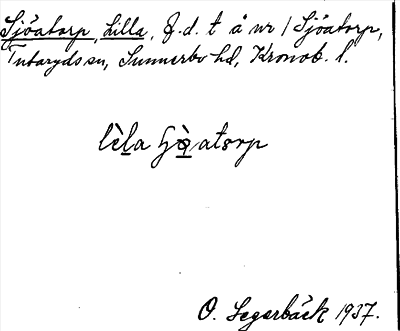 Sjöatorp, Lilla, f.d. t å nr 1 Sjöatorp,
Tutaryds sn, Sunnerbo hd, Kronob. l.
lèla atorp
O. Segerbäck 1937.